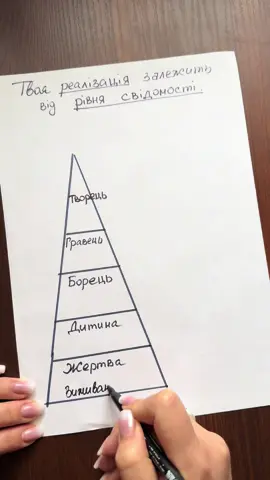 Твоя реалізація залежить
від рівня свідомості.
Творець
Гравець
Борець
Дитина
Жертва